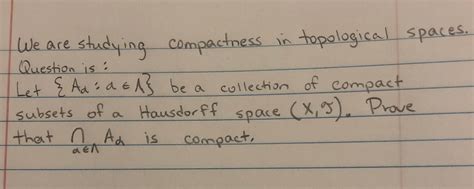 We are studying compactness in topological spaces.
Question is :
Let { Aα : α ∈ Λ} be a collection of compact
subsets of a Hausdorff space (X, 𝒯). Prove
that ⋂ Aα is compact.
α∈Λ